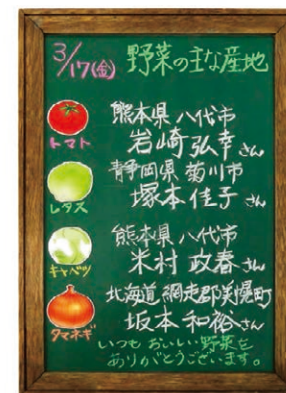 3/17(金) 野菜の主な産地
トマト
熊本県 八代市
岩崎弘幸さん
レタス
静岡県 菊川市
塚本佳子さん
キャベツ
熊本県 八代市
米村政春さん
タマネギ
北海道 網走郡美幌町
坂本和裕さん
いつもおいしい野菜を
ありがとうございます。